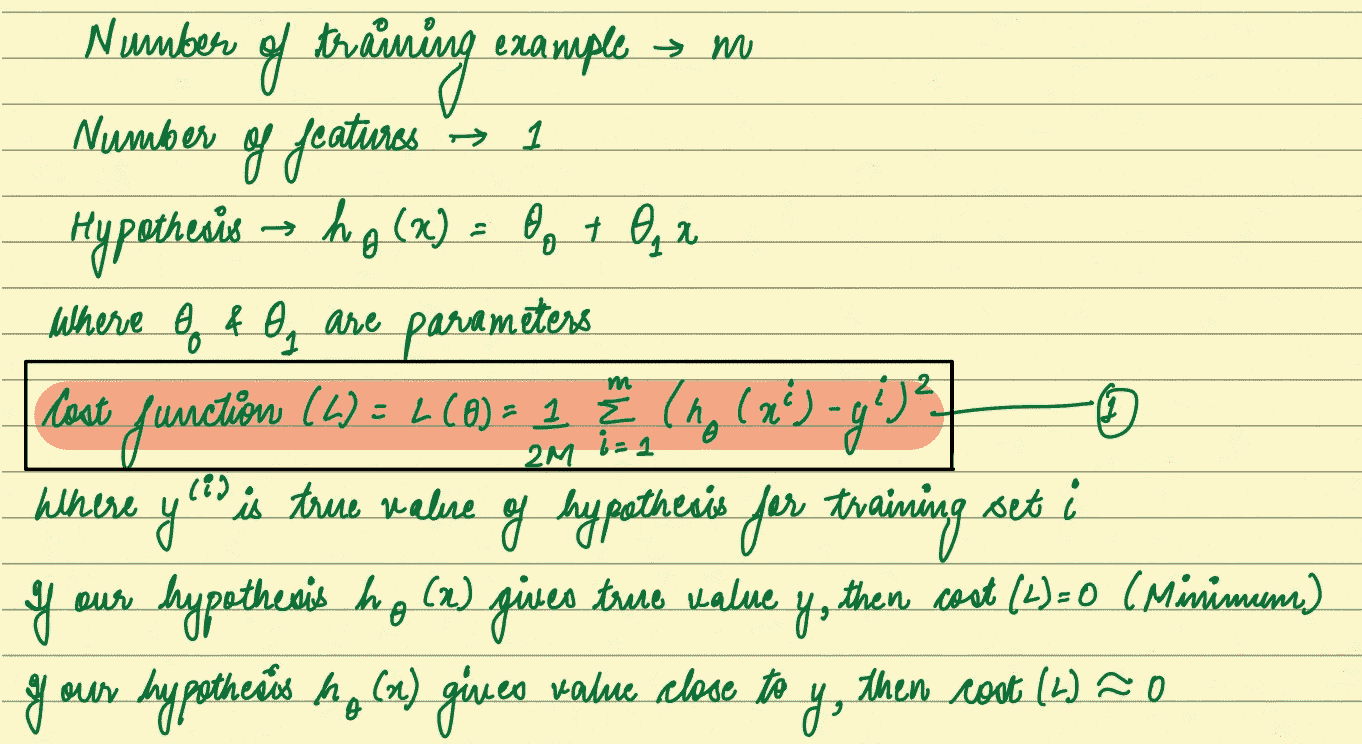 Number of training example → m
Number of features → 1
Hypothesis → h_θ (x) = θ_0 + θ_1 x
Where θ_0 & θ_1 are parameters
Cost function (L) = L(θ) = 1/2M Σ_{i=1}^{m} (h_θ (x^i) - y^i)^2 ①
Where y^(i) is true value of hypothesis for training set i
If our hypothesis h_θ (x) gives true value y, then cost (L)=0 (Minimum)
If our hypothesis h_θ (x) gives value close to y, then cost (L) ≈ 0